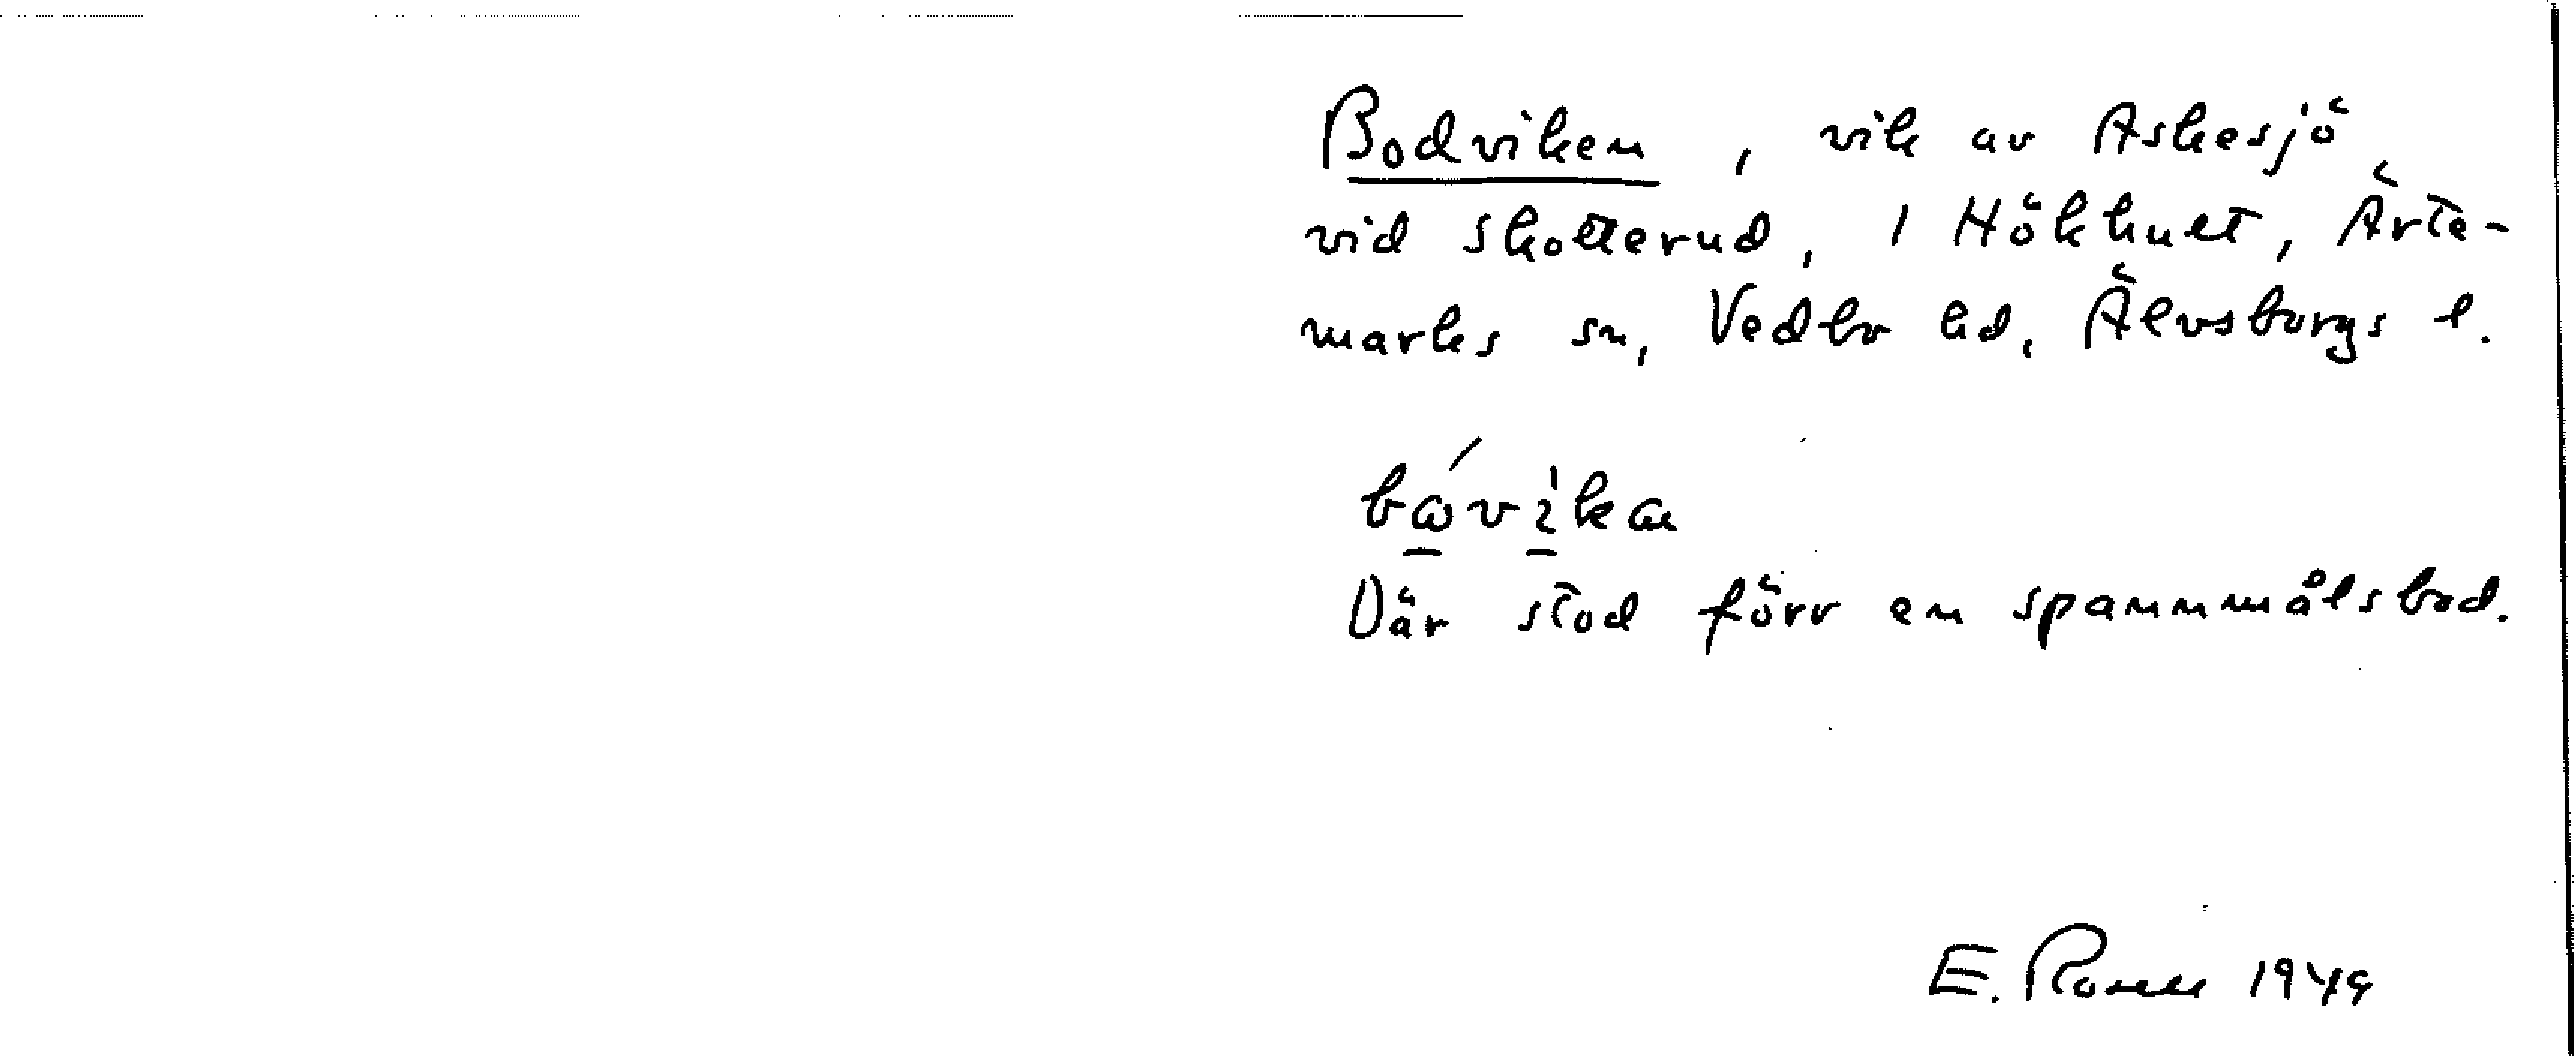 Bodviken, vik av Askesjö
vid Skotterud, i Hökhult, Ärte-
marks sn, Vedbo hd, Älvsborgs l.
Där stod förr en spannmålsbod.
E. 1949